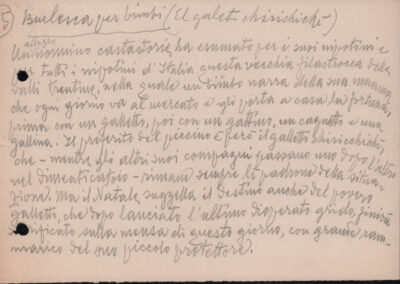 5) Burlesca per bimbi (El galet chirichichì)
allegro
Un nonnino cantastorie ha esumato per i suoi nipotini e
per tutti i nipotini d'Italia questa vecchia filastrocca delle
valli trentine, nella quale un bimbo narra della sua mamma
che ogni giorno va al mercato e gli porta a casa la fortuna,
prima con un galletto, poi con un gattino, un cagnetto e una
gallina. Il preferito del piccino è però il galletto chiricchichì,
che - mentre gli altri suoi compagni passano uno dopo l'altro
nel dimenticatoio - rimane sempre il padrone della situa-
zione. Ma il Natale suggella il destino anche del povero
galletto, che dopo lanciato l'ultimo disperato grido, finirà
sacrificato sulla mensa di questo giorno, con grande ram-
marico del suo piccolo protettore.